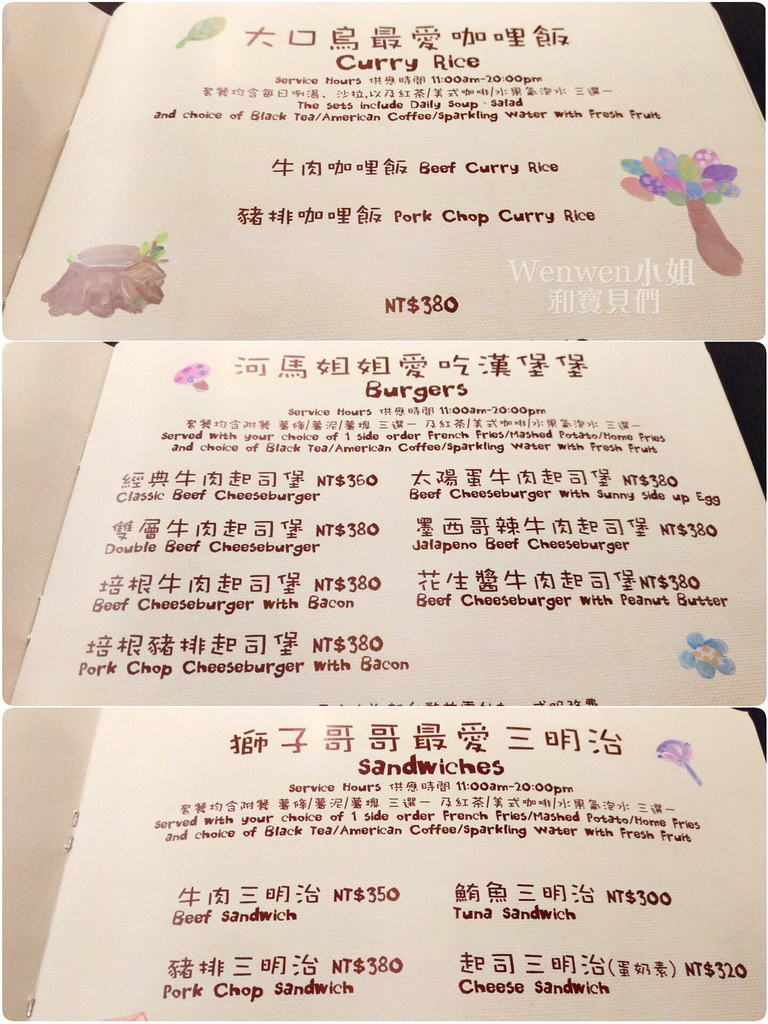 大口鳥最愛咖哩飯
Curry Rice
Service Hours 供應時間 11:00am-20:00pm
套餐均含每日例湯、沙拉,以及紅茶/美式咖啡/水果氣泡水 三選一
The sets include Daily Soup、Salad
and choice of Black Tea/American Coffee/Sparkling Water with Fresh Fruit
牛肉咖哩飯 Beef Curry Rice
豬排咖哩飯 Pork Chop Curry Rice
NT$380
Wenwen小姐
和寶貝們
河馬姐姐愛吃漢堡堡
Burgers
Service Hours 供應時間 11:00am-20:00pm
套餐均含附餐 薯條/薯泥/薯塊 三選一 及紅茶/美式咖啡/水果氣泡水 三選一
Served with your choice of 1 side order French Fries/Mashed Potato/Home Fries
and choice of Black Tea/American Coffee/Sparkling Water with Fresh Fruit
經典牛肉起司堡 NT$360
Classic Beef Cheeseburger
太陽蛋牛肉起司堡 NT$380
Beef Cheeseburger with Sunny side up Egg
雙層牛肉起司堡 NT$380
Double Beef Cheeseburger
墨西哥辣牛肉起司堡 NT$380
Jalapeno Beef Cheeseburger
培根牛肉起司堡 NT$380
Beef Cheeseburger with Bacon
花生醬牛肉起司堡NT$380
Beef Cheeseburger with Peanut Butter
培根豬排起司堡 NT$380
Pork Chop Cheeseburger with Bacon
獅子哥哥最愛三明治
Sandwiches
Service Hours 供應時間 11:00am-20:00pm
套餐均含附餐 薯條/薯泥/薯塊 三選一 及紅茶/美式咖啡/水果氣泡水 三選一
Served with your choice of 1 side order French Fries/Mashed Potato/Home Fries
and choice of Black Tea/American Coffee/Sparkling Water with Fresh Fruit
牛肉三明治 NT$350
Beef Sandwich
鮪魚三明治 NT$300
Tuna Sandwich
豬排三明治 NT$380
Pork Chop Sandwich
起司三明治(蛋奶素) NT$320
Cheese Sandwich